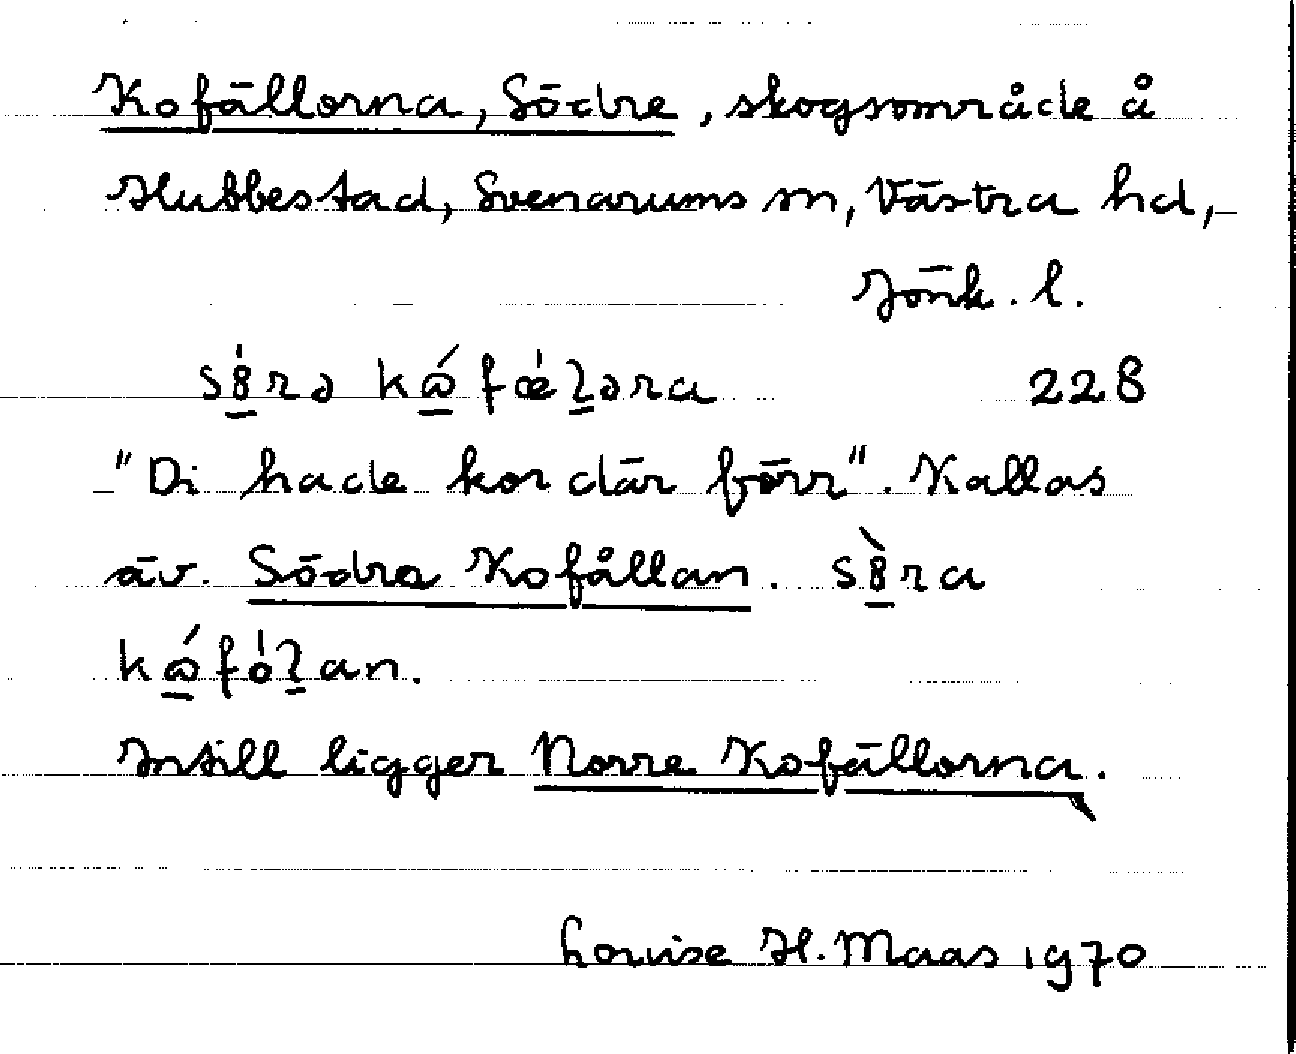 Kofällorna, Södre, skogsområde å
Hubbestad, Svenarums sn, Västra hd,
Jönk. l.
228
"Di hade kor där förr". Kallas
äv. Södra Kofållan.
Intill ligger Norre Kofällorna.
Louise H. Maas 1970